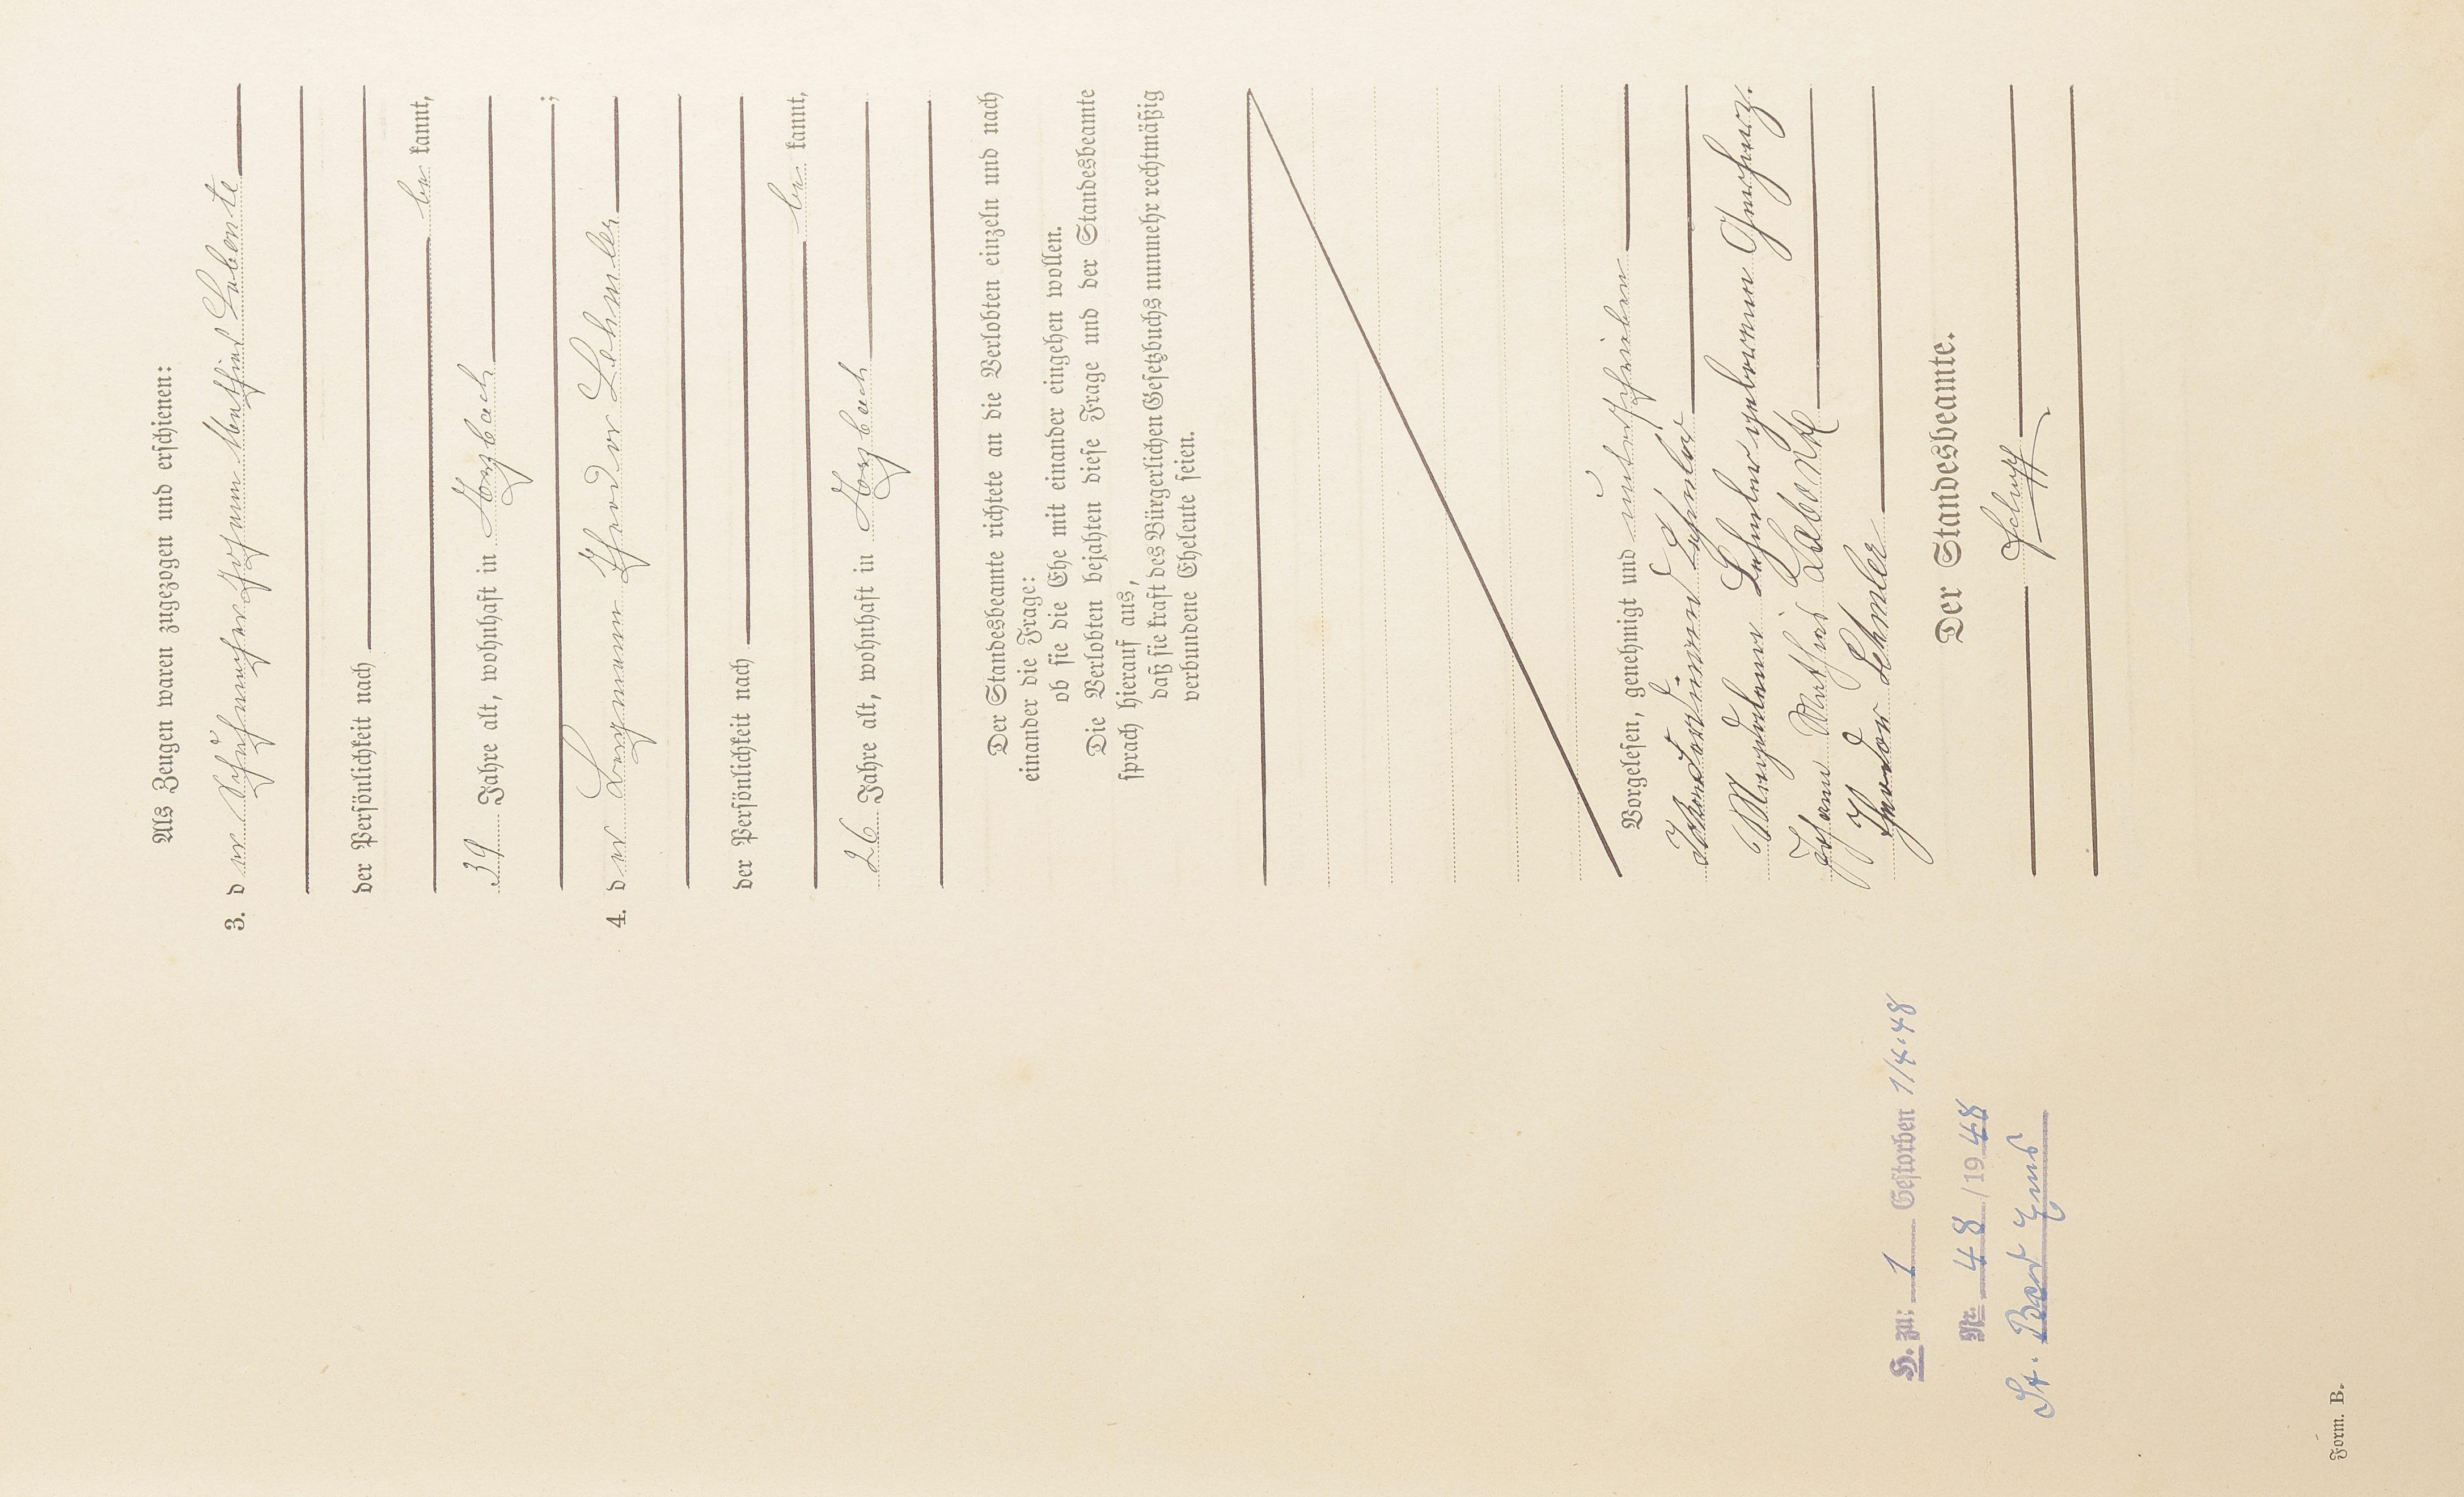 Als Zeugen waren zugezogen und erschienen:
3. der Schuhmacher Johann Mathias Labonte
der Persönlichkeit nach
be kannt,
39 Jahre alt, wohnhaft in Arzbach
;
4. der Bergmann Theodor Lehmler
der Persönlichkeit nach
be kannt,
26 Jahre alt, wohnhaft in Arzbach
Der Standesbeamte richtete an die Verlobten einzeln und nach
einander die Frage:
ob sie die Ehe mit einander eingehen wollen.
Die Verlobten bejahten diese Frage und der Standesbeamte
sprach hierauf aus,
daß sie kraft des Bürgerlichen Gesetzbuchs nunmehr rechtmäßig
verbundene Eheleute seien.
Vorgelesen, genehmigt und unterschrieben
Ferdinand Lehmler
Magdalena Lehmler geborene
Johann Mathias Labonte
Theodor Lehmler
Der Standesbeamte.
H. zu: 1 Gestorben 1/4.48
Nr. 48/1948
St. Bad Ems
Form. B.